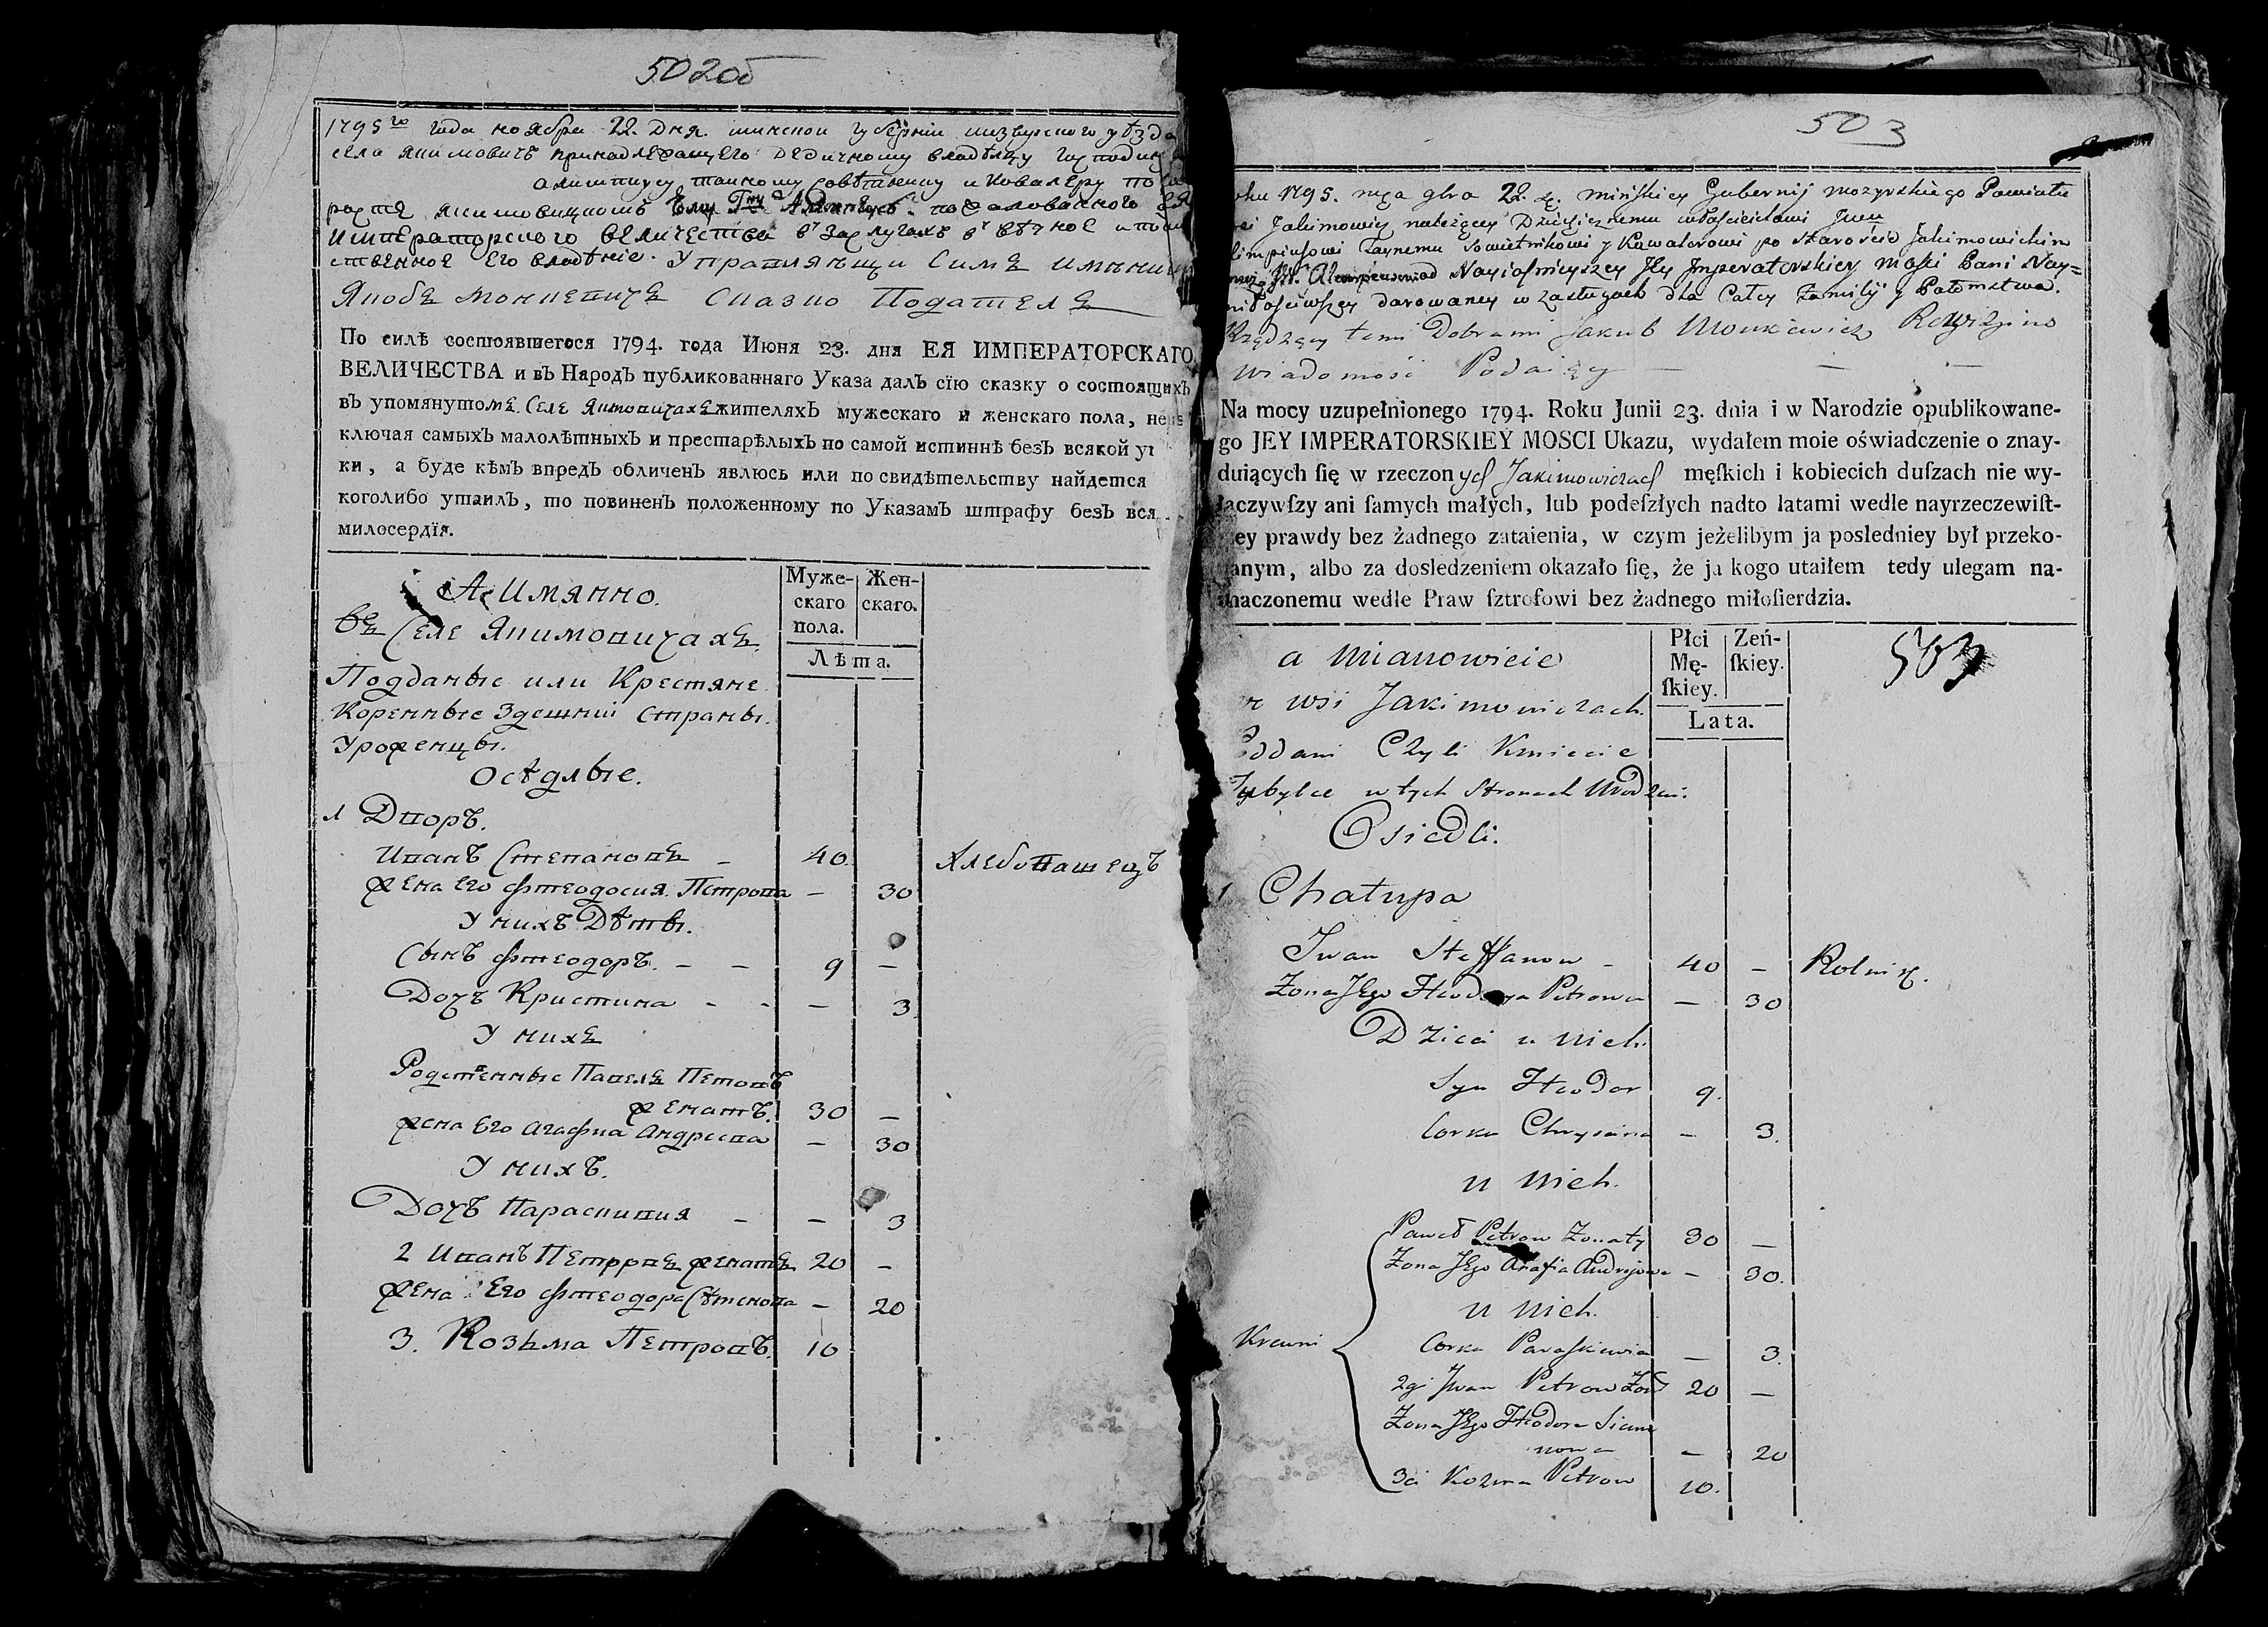 502об
1795го года ноября 22. дня. минской губернии мозырского уѣзда
села якимовичъ принадлежащего дедичному владѣлцу господину
алимпиусу таиному совѣтнику и ковалеру по ста
Императорского величества въ заслугахъ въ вѣчное
ственное Его владѣние. Управляющи Симъ имѣниемъ
Якобъ Монкевичъ Сказко Подателъ
По силѣ состоявшегося 1794. года Июня 23. дня ЕЯ ИМПЕРАТОРСКАГО
ВЕЛИЧЕСТВА и въ Народъ публикованнаго Указа далъ сїю сказку о состоящихъ
въ упомянутомъ Селе Якимовичахъ жителяхъ мужескаго и женскаго пола, не
ключая самыхъ малолѣтныхъ и престарѣлыхъ по самой истиннѣ безъ всякой у
ки, а буде кѣмъ впредъ обличенъ явлюсь или по свидѣтельству найдется
коголибо утаилъ, то повиненъ положенному по Указамъ штрафу безъ вся
милосердїя.
А Имянно.
Муже-
скаго
пола.
Жен-
скаго.
Лѣта.
Въ Селе Якимовичахъ.
Подданые или Крестяне
Коренные Здешний страны.
Уроженцы.
Осѣдлые.
1 Дворъ.
Иванъ Степановъ - 40. Хлебопашецъ
жена его Фтеодосия Петрова - 30
У нихъ Дѣты.
Сынъ Фтеодоръ. - - 9 -
Дочъ Кристина - - - 3
У нихъ
Родственные Павелъ Петровъ
женатъ. 30 -
жена Его Агафиа Андреева - 30
У нихъ.
Дочъ Параскивия - - 3
2 Иванъ Петровъ женатъ 20 -
жена Его Фтеодора Сѣменова - 20
3. Козьма Петровъ. 10
503
oku 1795. mca gbra 22. d. minſkiey Gubernij mozyrskiego Powiatu
Jakimowicz należącey Dziedzicznemu właścicielowi
limpiusowi Taynemu Sowietnikowi y Kawalerowi po Starościе Jakimowickim
Nayiaśnieyszey Jey Imperatorskiey mości Pani Nay=
miłościwszey darowaney w zasługach dla Całey Familij y Potomstwa.
Rządzący temi Dobrami Jakub Monkiewicz
Wiadomość Podaięcy - - -
Na mocy uzupełnionego 1794. Roku Junii 23. dnia i w Narodzie opublikowane-
go JEY IMPERATORSKIEY MOSCI Ukazu, wydałem moie oświadczenie o znay-
duiących ſię w rzeczonych Jakimowiczach męſkich i kobiecich duſzach nie wy-
łączywſzy ani ſamych małych, lub podeſzłych nadto latami wedle nayrzeczewiſt-
ey prawdy bez żadnego zataienia, w czym jeżelibym ja posledniey był przeko-
anym, albo za dosledzeniem okazało ſię, że ja kogo utaiłem tedy ulegam na-
znaczonemu wedle Praw ſztrofowi bez żadnego miłoſierdzia.
a mianowicie
Płci
Mę-
ſkiey.
Zeń-
ſkiey.
Lata.
503
w wsi Jakimowiczach.
Poddani Czyli Kmiecie
Tubylce w tych Stronach Urodzeni.
Osiedli.
1 Chatupa
Iwan Steffanow - 40 - Rolnik.
Zona Jego Fteodosya Petrowa - 30
Dzieci u nich
Syn Fteodor 9.
Corka Chrystina - 3.
u nich.
Krewni
Paweł Petrow Zonaty 30 -
Zona Jego Anafia Andrejowa - 30.
u nich.
Corka Paraskiewia - 3.
2gi Iwan Petrow Zon 20 -
Zona Jego Fteodora Sieme
nowa - 20
3ci Kozma Petrow 10.